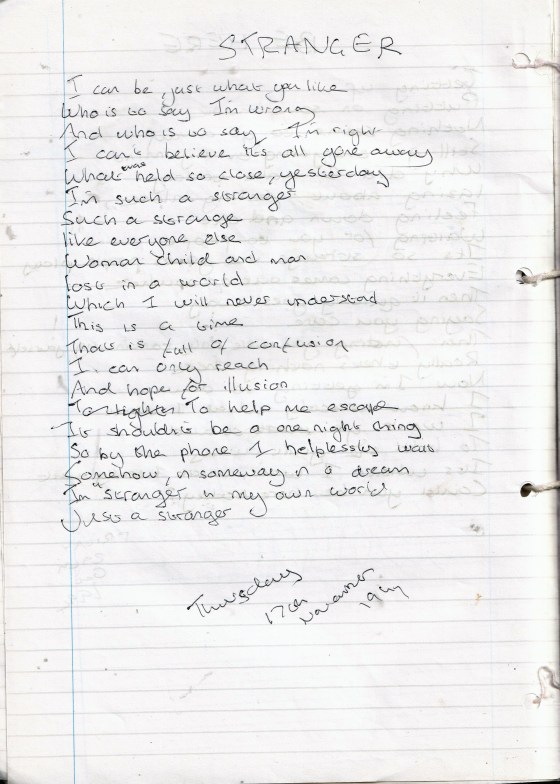 STRANGER
I can be, just what you like
Who is to say I'm wrong
And who is to say I'm right
I can't believe it's all gone away
What was held so close, yesterday
I'm such a stranger
Such a strange
like everyone else
Woman child and man
lost in a world
Which I will never understad
This is a time
Thats is full of confusion
I can only reach
And hope for illusion
To To help me escape
It shouldn't be a one night thing
So by the phone I helplessly wait
Somehow, n someway n a dream
I'm a stranger n my own world
Just a stranger
Thursday
17th
November